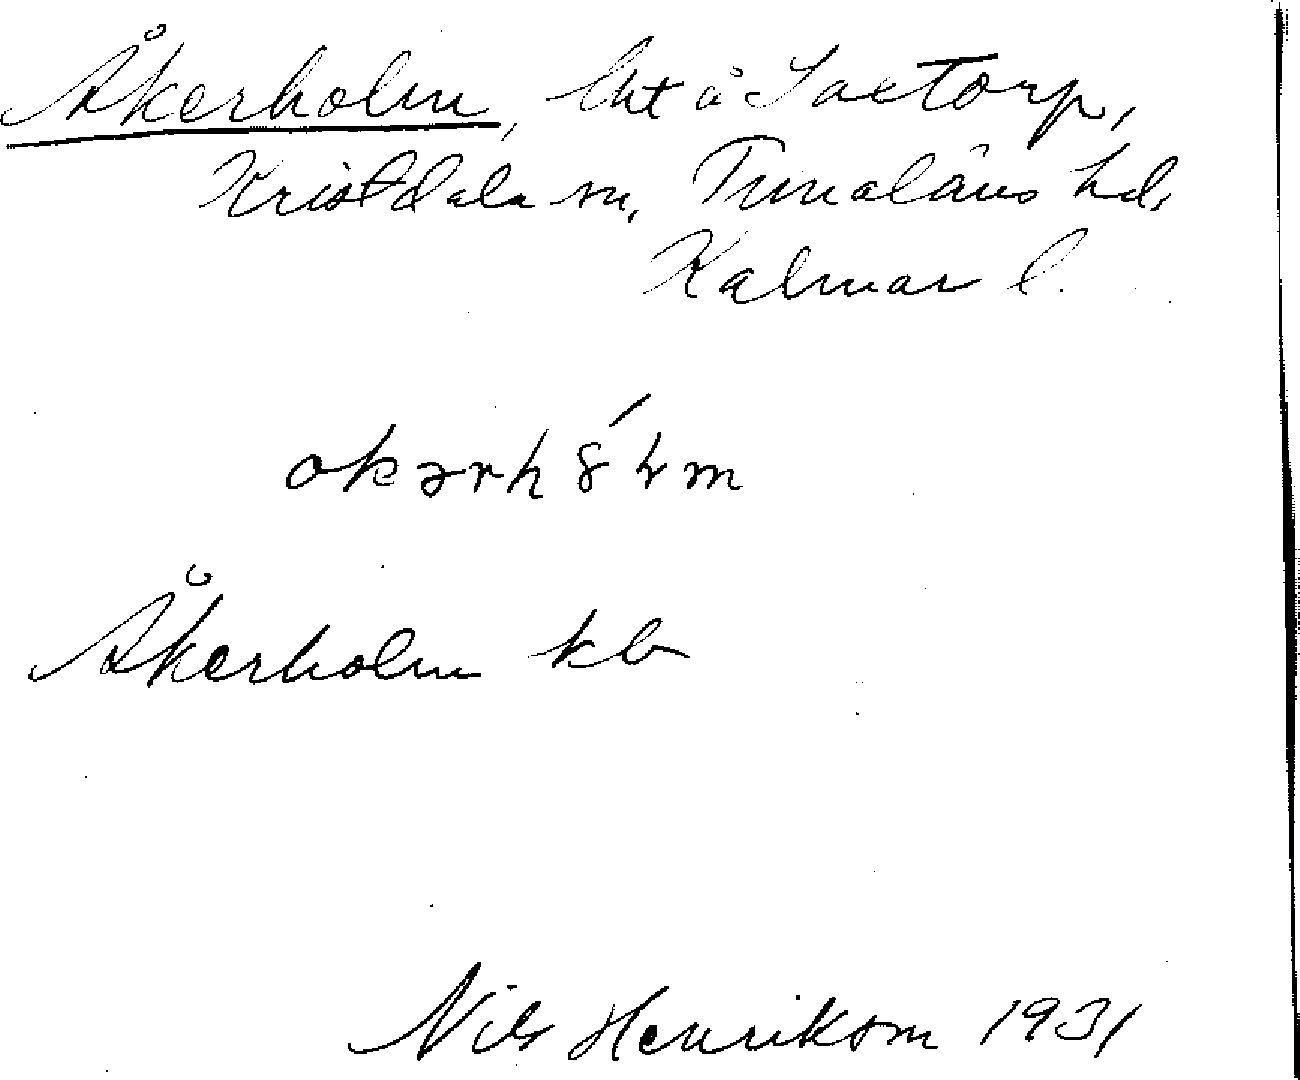 Åkerholm, lht å Saxtorp,
Kristdala sn, Tunaläns hd,
Kalmar l.
Åkerholm kb
Nils Henrikson 1931